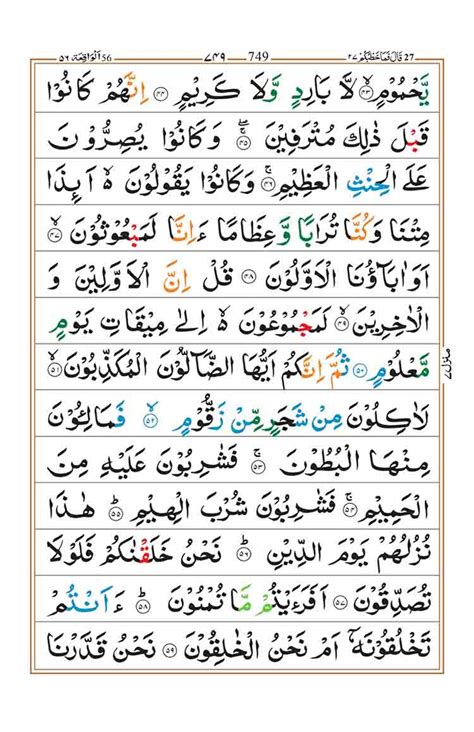 الواقعة ٥٦ 56 ٧٤٩ 749 قال فما خطبكم ٢٧ 27
يَّحْمُوْمٍ ﴿٤٣﴾ لَّا بَارِدٍ وَّلَا كَرِيْمٍ ﴿٤٤﴾ اِنَّهُمْ كَانُوْا
قَبْلَ ذٰلِكَ مُتْرَفِيْنَ ﴿٤٥﴾ وَكَانُوْا يُصِرُّوْنَ
عَلَى الْحِنْثِ الْعَظِيْمِ ﴿٤٦﴾ وَكَانُوْا يَقُوْلُوْنَ ەۙ اَىِٕذَا
مِتْنَا وَكُنَّا تُرَابًا وَّعِظَامًا ءَاِنَّا لَمَبْعُوْثُوْنَ ﴿٤٧﴾
اَوَاٰبَآؤُنَا الْاَوَّلُوْنَ ﴿٤٨﴾ قُلْ اِنَّ الْاَوَّلِيْنَ وَ
الْاٰخِرِيْنَ ﴿٤٩﴾ لَمَجْمُوْعُوْنَ ەۙ اِلٰى مِيْقَاتِ يَوْمٍ
مَّعْلُوْمٍ ﴿٥٠﴾ ثُمَّ اِنَّكُمْ اَيُّهَا الضَّآلُّوْنَ الْمُكَذِّبُوْنَ ﴿٥١﴾
لَاٰكِلُوْنَ مِنْ شَجَرٍ مِّنْ زَقُّوْمٍ ﴿٥٢﴾ فَمَالِـُٔوْنَ
مِنْهَا الْبُطُوْنَ ﴿٥٣﴾ فَشٰرِبُوْنَ عَلَيْهِ مِنَ
الْحَمِيْمِ ﴿٥٤﴾ فَشٰرِبُوْنَ شُرْبَ الْهِيْمِ ﴿٥٥﴾ هٰذَا
نُزُلُهُمْ يَوْمَ الدِّيْنِ ﴿٥٦﴾ نَحْنُ خَلَقْنٰكُمْ فَلَوْلَا
تُصَدِّقُوْنَ ﴿٥٧﴾ اَفَرَءَيْتُمْ مَّا تُمْنُوْنَ ﴿٥٨﴾ ءَاَنْتُمْ
تَخْلُقُوْنَهٗٓ اَمْ نَحْنُ الْخٰلِقُوْنَ ﴿٥٩﴾ نَحْنُ قَدَّرْنَا
منزل ٧